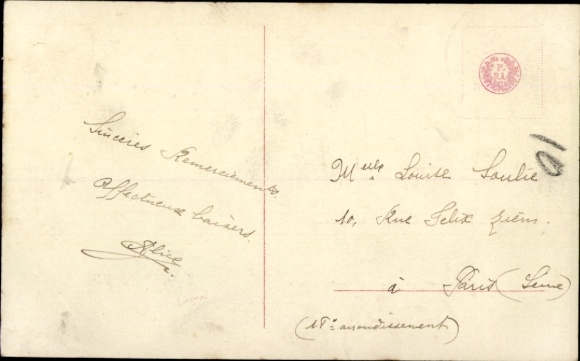 Sincères Remerciements.
Affectueux baisers.
Alice
Melle Louise Soulié
10, Rue Félix Ziem.
à Paris (Seine)
(18e arrondissement)
10